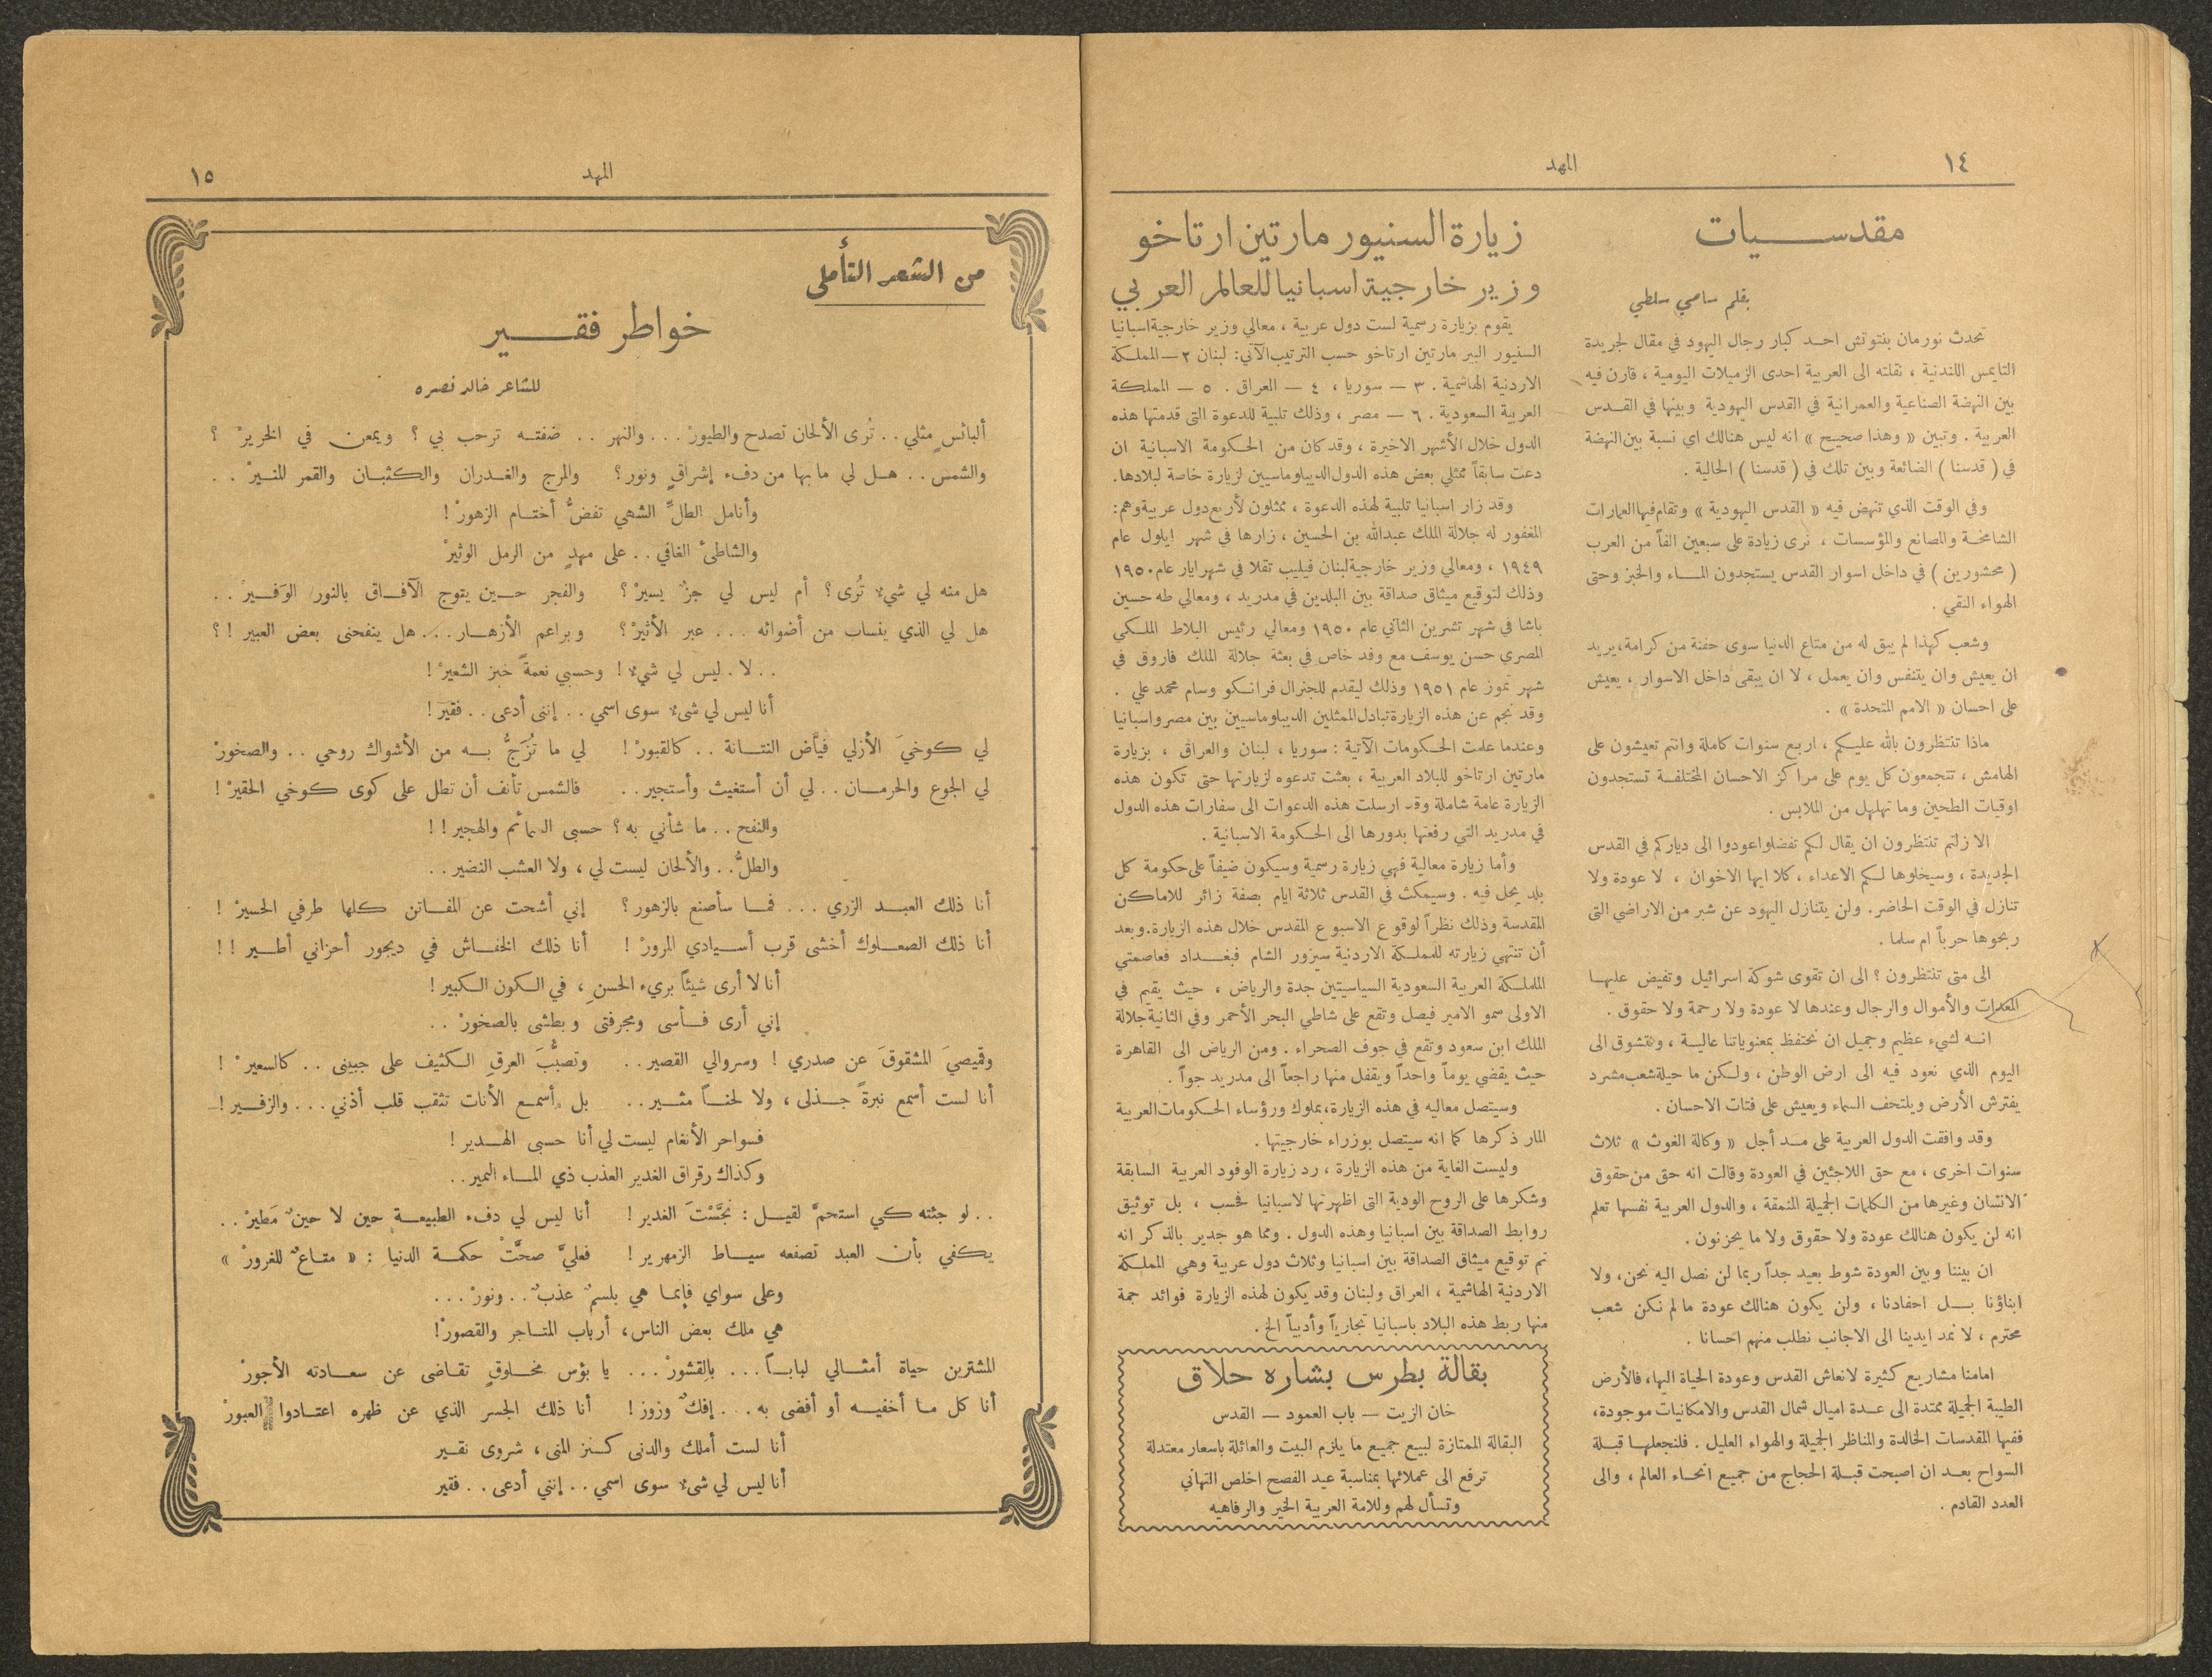 ١٤
المهد
مقدسيات
بقلم سامي سلطي
تحدث نورمان بنتوتش احد كبار رجال اليهود في مقال لجريدة
التايمس اللندنية ، نقلته الى العربية احدى الزميلات اليومية ، قارن فيه
بين النهضة الصناعية والعمرانية في القدس اليهودية وبينها في القدس
العربية . وتبين « وهذا صحيح » انه ليس هنالك اي نسبة بين النهضة
في ( قدسنا ) الضائعة وبين تلك في ( قدسنا ) الحالية .
وفي الوقت الذي تنهض فيه « القدس اليهودية » وتقام فيها العمارات
الشامخة والمصانع والمؤسسات ، نرى زيادة على سبعين الفاً من العرب
( محشورين ) في داخل اسوار القدس يستجدون الماء والخبز وحتى
الهواء النقي .
وشعب كهذا لم يبق له من متاع الدنيا سوى حفنة من كرامة، يريد
ان يعيش وان يتنفس وان يعمل ، لا ان يبقى داخل الاسوار ، يعيش
على احسان « الامم المتحدة » .
ماذا تنتظرون بالله عليكم ، اربع سنوات كاملة وانتم تعيشون على
الهامش ، تتجمعون كل يوم على مراكز الاحسان المختلفة تستجدون
اوقيات الطحين وما تهلهل من الملابس .
الا زلتم تنتظرون ان يقال لكم تفضلوا عودوا الى دياركم في القدس
الجديدة ، وسيخلوها لكم الاعداء ، كلا ايها الاخوان ، لا عودة ولا
تنازل في الوقت الحاضر . ولن يتنازل اليهود عن شبر من الاراضي التي
ربحوها حرباً ام سلما .
الى متى تنتظرون ؟ الى ان تقوى شوكة اسرائيل وتفيض عليها
المعدات والأموال والرجال وعندها لا عودة ولا رحمة ولا حقوق .
انه لشيء عظيم وجميل ان نحتفظ بمعنوياتنا عالية ، ونتشوق الى
اليوم الذي نعود فيه الى ارض الوطن ، ولكن ما حيلة شعب مشرد
يفترش الأرض ويلتحف السماء ويعيش على فتات الاحسان .
وقد وافقت الدول العربية على مد أجل « وكالة الغوث » ثلاث
سنوات اخرى ، مع حق اللاجئين في العودة وقالت انه حق من حقوق
الانسان وغيرها من الكلمات الجميلة المنمقة ، والدول العربية نفسها تعلم
انه لن يكون هنالك عودة ولا حقوق ولا ما يحزنون .
ان بيننا وبين العودة شوط بعيد جداً ربما لن نصل اليه نحن، ولا
ابناؤنا بل احفادنا ، ولن يكون هنالك عودة ما لم نكن شعب
محترم ، لا نمد ايدينا الى الاجانب نطلب منهم احسانا .
امامنا مشاريع كثيرة لانعاش القدس وعودة الحياة اليها، فالأرض
الطيبة الجميلة ممتدة الى عدة اميال شمال القدس والامكانيات موجودة،
ففيها المقدسات الخالدة والمناظر الجميلة والهواء العليل . فلنجعلها قبلة
السواح بعد ان اصبحت قبلة الحجاج من جميع انحاء العالم ، والى
العدد القادم .
زيارة السنيور مارتين ارتاخو
وزير خارجية اسبانيا للعالم العربي
يقوم بزيارة رسمية لست دول عربية ، معالي وزير خارجية اسبانيا
السنيور البير مارتين ارتاخو حسب الترتيب الآتي: لبنان ٢ – المملكة
الاردنية الهاشمية . ٣ – سوريا ، ٤ – العراق . ٥ – المملكة
العربية السعودية . ٦ – مصر ، وذلك تلبية للدعوة التى قدمتها هذه
الدول خلال الأشهر الاخيرة ، وقد كان من الحكومة الاسبانية ان
دعت سابقاً ممثلي بعض هذه الدول الديبلوماسيين لزيارة خاصة لبلادها.
وقد زار اسبانيا تلبية لهذه الدعوة ، ممثلون لأربع دول عربية وهم:
المغفور له جلالة الملك عبدالله بن الحسين ، زارها في شهر ايلول عام
١٩٤٩ ، ومعالي وزير خارجية لبنان فيليب تقلا في شهر ايار عام ١٩٥٠
وذلك لتوقيع ميثاق صداقة بين البلدين في مدريد ، ومعالي طه حسين
باشا في شهر تشرين الثاني عام ١٩٥٠ ومعالي رئيس البلاط الملكي
المصري حسن يوسف مع وفد خاص في بعثة جلالة الملك فاروق في
شهر تموز عام ١٩٥١ وذلك ليقدم للجنرال فرانكو وسام محمد علي .
وقد نجم عن هذه الزيارة تبادل الممثلين الديبلوماسيين بين مصر واسبانيا
وعندما علمت الحكومات الآتية : سوريا ، لبنان والعراق ، بزيارة
مارتين ارتاخو للبلاد العربية ، بعثت تدعوه لزيارتها حتى تكون هذه
الزيارة عامة شاملة وقد ارسلت هذه الدعوات الى سفارات هذه الدول
في مدريد التي رفعتها بدورها الى الحكومة الاسبانية .
وأما زيارة معالية فهي زيارة رسمية وسيكون ضيفاً على حكومة كل
بلد يحل فيه . وسيمكث في القدس ثلاثة ايام بصفة زائر للاماكن
المقدسة وذلك نظراً لوقوع الاسبوع المقدس خلال هذه الزيارة. وبعد
أن تنتهي زيارته للمملكة الاردنية سيزور الشام فبغداد فعاصمتي
المملكة العربية السعودية السياسيتين جدة والرياض ، حيث يقيم في
الاولى سمو الامير فيصل وتقع على شاطي البحر الأحمر وفي الثانية جلالة
الملك ابن سعود وتقع في جوف الصحراء . ومن الرياض الى القاهرة
حيث يقضي يوماً واحداً ويقفل منها راجعاً الى مدريد جواً .
وسيتصل معاليه في هذه الزيارة، بملوك ورؤساء الحكومات العربية
المار ذكرها كما انه سيتصل بوزراء خارجيتها .
وليست الغاية من هذه الزيارة ، رد زيارة الوفود العربية السابقة
وشكرها على الروح الودية التى اظهرتها لاسبانيا فحسب ، بل توثيق
روابط الصداقة بين اسبانيا وهذه الدول . ومما هو جدير بالذكر انه
تم توقيع ميثاق الصداقة بين اسبانيا وثلاث دول عربية وهي المملكة
الاردنية الهاشمية ، العراق ولبنان وقد يكون لهذه الزيارة فوائد جمة
منها ربط هذه البلاد باسبانيا تجارياً وأدبياً الخ .
بقالة بطرس بشاره حلاق
خان الزيت – باب العمود – القدس
البقالة الممتازة لبيع جميع ما يلزم البيت والعائلة باسعار معتدلة
ترفع الى عملائها بمناسبة عيد الفصح اخلص التهاني
وتسأل لهم وللامة العربية الخير والرفاهيه
المهد
١٥
من الشعر التأملي
خواطر فقير
للشاعر خالد نصره
ألبائسٍ مثلي . . تُرى الألحان تصدح والطيورْ . . . والنهر . . ضفته ترحب بي ؟ ويمعن في الخريرْ ؟
والشمس . . هل لي ما بها من دفء إشراقٍ ونور؟ والمرج والغدران والكثبان والقمر المنيرْ . .
وأنامل الطلِّ الشهي تفضُّ أختام الزهورْ !
والشاطئ الغافي . . على مهدٍ من الرمل الوثيرْ
هل منه لي شيء تُرى؟ أم ليس لي جزء يسيرْ ؟ والفجر حين يتوج الآفاق بالنور الوَفيرْ . .
هل لي الذي ينساب من أضوائه . . . عبر الأثيرْ ؟ وبراعم الأزهار . . . هل ينفحنى بعض العبير ! ؟
. . لا . ليس لي شيء ! وحسبي نعمةً خبز الشعيرْ !
أنا ليس لي شيء سوى اسمي . . إننى أدعى . . فقيرَ !
لي كوخيَ الأزلي فيَّاض النتانة . . كالقبورْ ! لي ما تُزَجُّ به من الأشواك روحي . . والصخورْ
لي الجوع والحرمان . . لي أن أستغيث وأستجير . . فالشمس تأنف أن تطل على كوى كوخي الحقيرْ !
والنفح . . ما شأني به ؟ حسبى السمائم والهجير ! !
والطلُّ . . والألحان ليست لي ، ولا العشب النضير . .
أنا ذلك العبد الزري . . . فما سأصنع بالزهور ؟ إني أشحت عن المفاتن كلها طرفي الحسيرْ !
أنا ذلك الصعلوك أخشى قرب أسيادي المرورْ ! أنا ذلك الخفاش في ديجور أحزاني أطير ! !
أنا لا أرى شيئاً بريء الحسنِ ، في الكون الكبير !
إني أرى فأسى ومجرفتى وبطشى بالصخورْ . .
وقميصيَ المشقوقَ عن صدري ! وسروالي القصير . . وتصبُّبَ العرقِ الكثيف على جبينى . . كالسعيرْ !
أنا لست أسمع نبرةً جذلى ، ولا لحناً مثير . . بل أسمع الأنات تثقب قلب أذني . . . والزفير !
فسواحر الأنغام ليست لي أنا حسبى الهدير !
وكذاك رقراق الغدير العذب ذي الماء النمير . .
. . لو جئته كي استحمَّ لقيل : نجَّسْتَ الغدير ! أنا ليس لي دفء الطبيعة حين لا حينٌ مَطيرْ . .
يكفي بأن العبد تصفعه سياط الزمهرير ! فعليَّ صحَّتْ حكمة الدنيا : « متاعٌ للغرورْ »
وعلى سواي فإنما هي بلسمٌ عذبٌ . . ونورْ . . .
هي ملك بعض الناس، أرباب المتاجر والقصورْ!
المشترين حياة أمثالي لبابـاً . . . بالقشورْ . . . يا بؤس مخلوقٍ تقاضى عن سعادته الأجورْ
أنا كل ما أخفيه أو أفضى به . . . إفكٌ وزور ! أنا ذلك الجسر الذي عن ظهره اعتادوا العبورْ
أنا لست أملك والدنى كنز المنى ، شروى نقير
أنا ليس لي شيء سوى اسمي . . إنني أدعى . . فقير